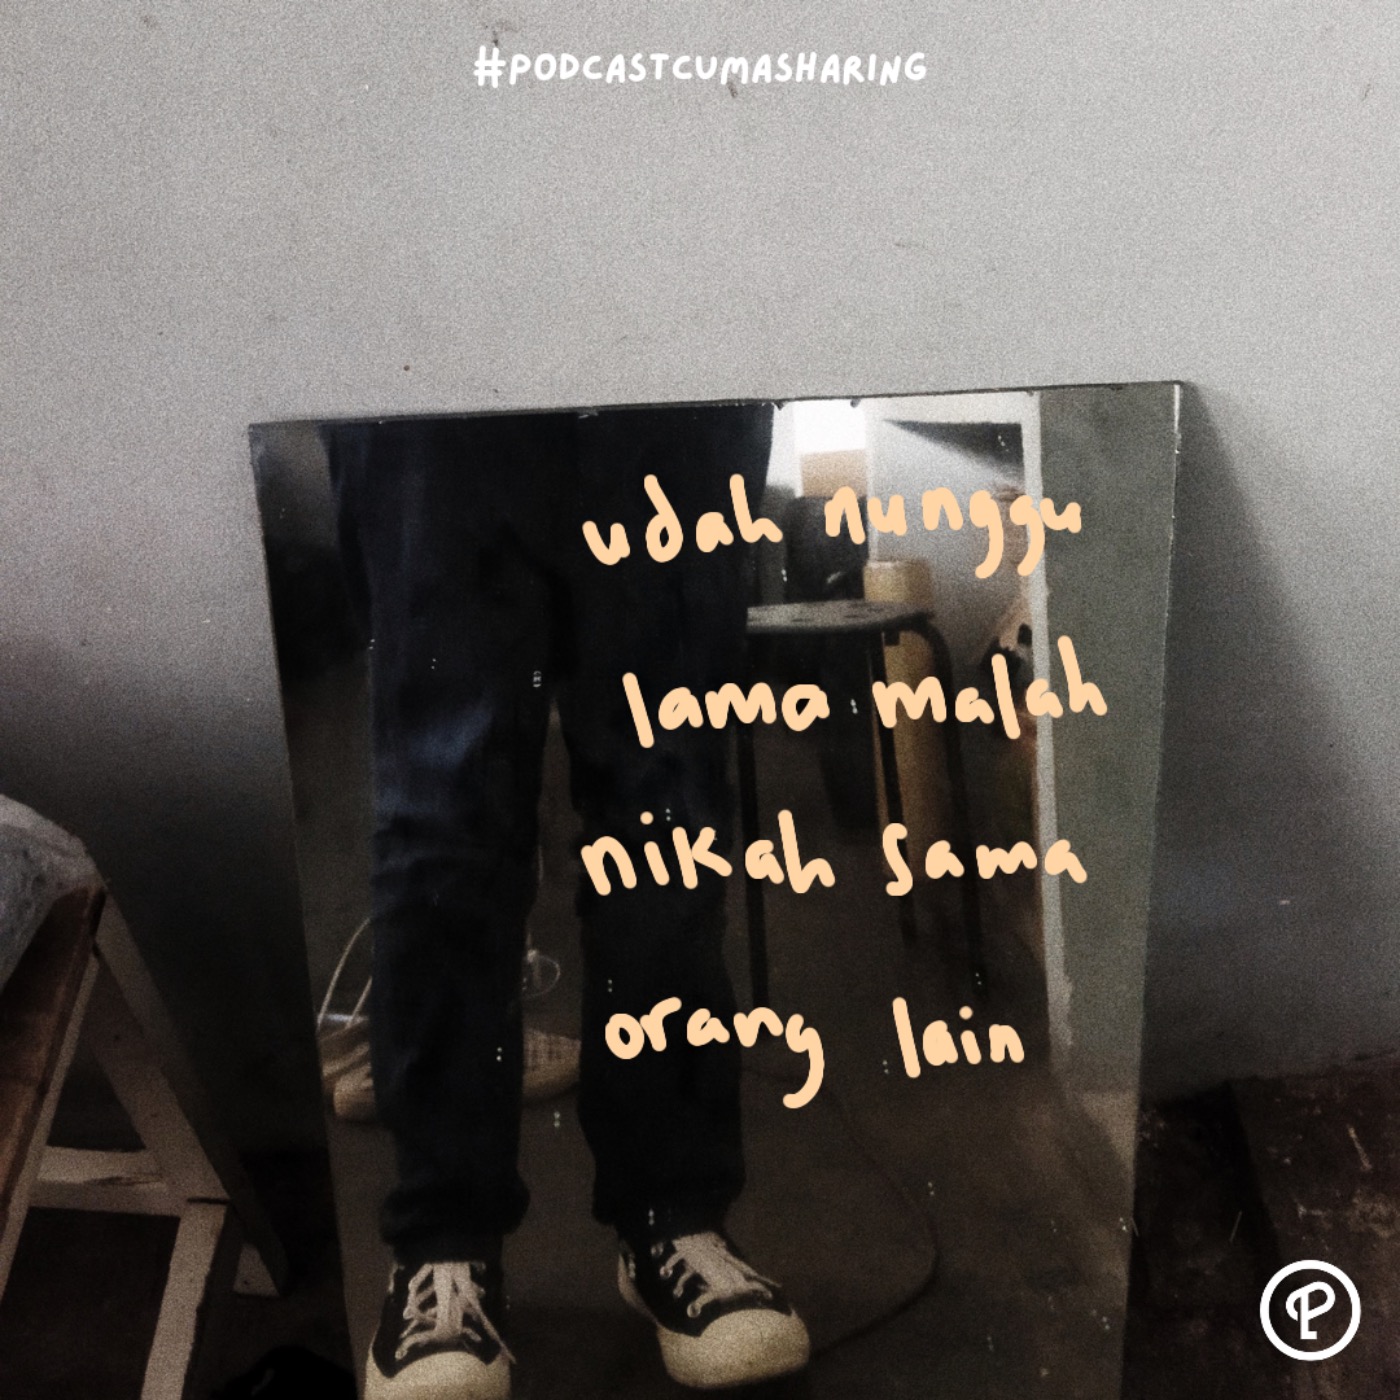 #PODCASTCUMASHARING
udah nunggu
lama malah
nikah sama
orang lain